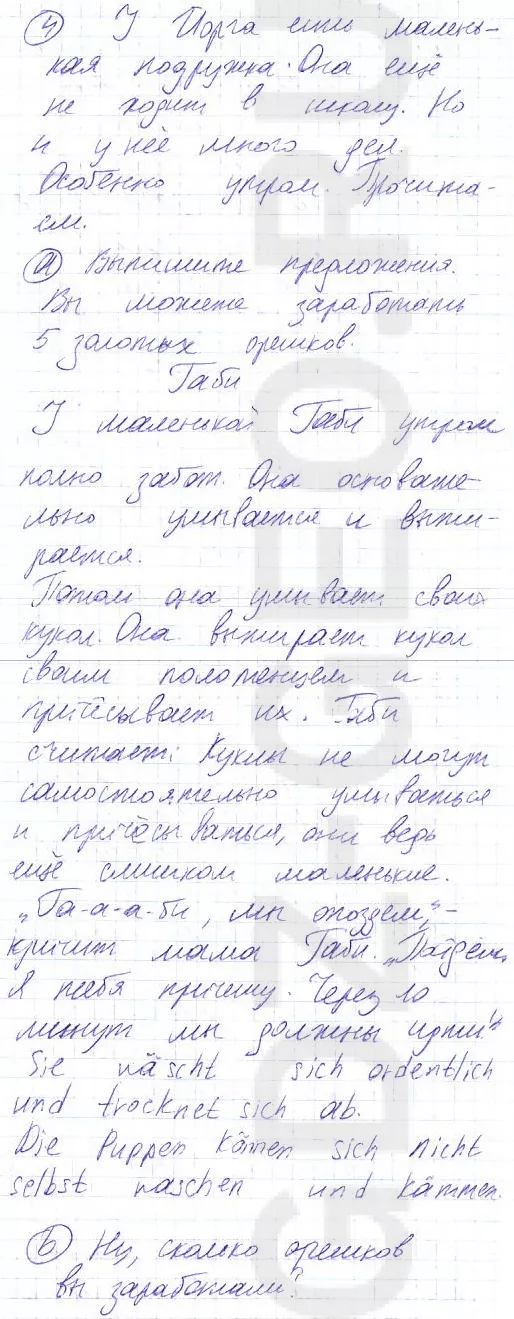 ④ У Йорга есть малень-
кая подружка. Она ещё
не ходит в школу. Но
и у неё много дел.
Особенно утром. Прочита-
ем.
ⓐ Выпишите предложения.
Вы можете заработать
5 золотых орешков.
Габи
У маленькой Габи утром
полно забот. Она основате-
льно умывается и выти-
рается.
Потом она умывает своих
кукол. Она вытирает кукол
своим полотенцем и
причёсывает их. Габи
считает: Куклы не могут
самостоятельно умываться
и причёсываться, они ведь
ещё слишком маленькие.
„Га-а-а-би, мы опоздаем,"-
кричит мама Габи. „Пойдём,
Я тебя причешу. Через 10
минут мы должны идти!"
Sie wäscht sich ordentlich
und trocknet sich ab.
Die Puppen können sich nicht
selbst waschen und kämmen.
ⓑ Ну, сколько орешков
вы заработали?
GDZ-GEO.RU